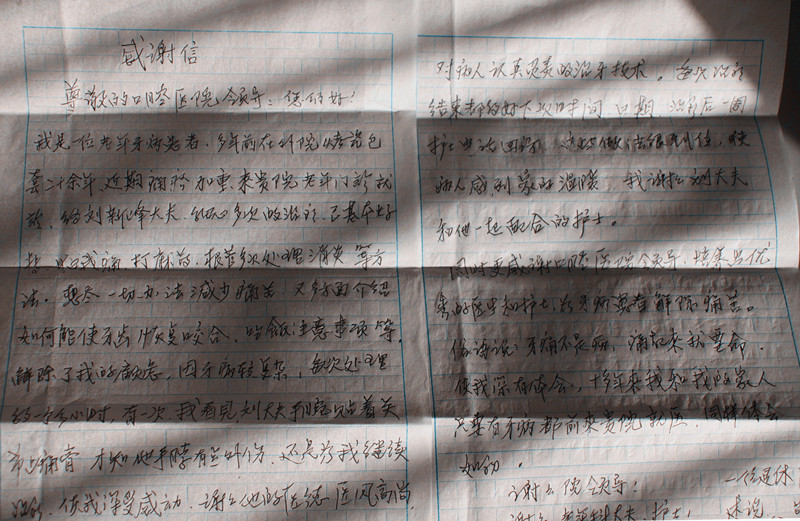 感谢信
尊敬的口腔医院领导：您们好！
我是一位老年牙病患者，多年前在外院烤瓷包
套二十余年，近期病形加重，来贵院老年门诊就
诊，经刘新峰大夫，多次的治疗，已基本好
打麻药，根管多次处理消炎等方
法。想尽一切办法减少痛苦，又多方面介绍
如何能使牙齿恢复咬合，吃饭注意事项等，
解除了我的顾虑，因牙病较复杂，每次处理
约一个多小时，有一次，我看见刘大夫手腕贴着关
节止痛膏，才知他手臂有些外伤，还是为我继续
治疗，使我深受感动，谢谢他的医德医风高尚，
对病人认真完美的治牙技术。每次治疗
结束都约好下次时间日期，治疗后一周
护士电话回访，这些做法很到位，使
病人感到家的温暖，我谢谢刘大夫
和他一起配合的护士。
同时更感谢口腔医院领导，培养出优
秀的医生和护士，为牙病患者解除痛苦。
俗话说：牙痛不是病，痛起来就要命，
使我深有体会，十多年来我和我的家人
只要有牙病都前来贵院就医，同样体会
如初。
谢谢院领导！ 一位退休
谢谢 大夫、护士！